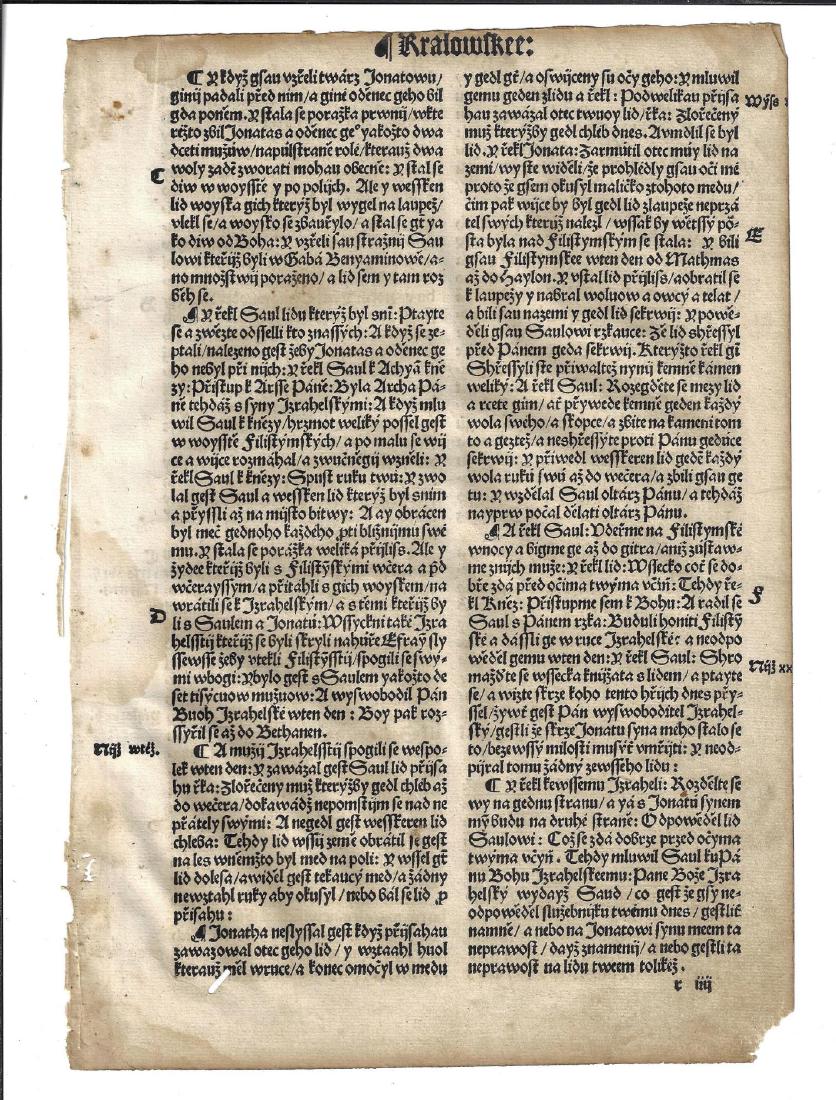 ¶ Kralowskee:
₵ Y když gsau vzřeli twárz Jonatowu/
ginij padali před nim/a giné oděnec geho bil
gda poněm. Y stala se poražka prwnij/wkte
réžto zbil Jonatas a oděnec geᵒ yakožto dwa
dceti mužůw/napůlstraně rolé/kterauž dwa
woly zadě zworati mohau obecně: Y stal se
C
diw w woyssťe y po polijch. Ale y wessken
lid woyska gich kteryž byl wygel na laupež/
wlekl se/a woysko se zbauřylo/a stal se gt ya
ko diw od Boha: Y vzřeli sau stražnij Sau
lowi kteřijž byli w Gabá Benyaminowě/a-
no množstwij poraženo/a lid sem y tam roz
běh se.
¶ Y řekl Saul lidu kterýž byl snī: Ptayte
se a zwězte odsselli kto znassých: A když se ze-
ptali/nalezeno gest žeby Jonatas a oděnec ge
ho nebyl při nijch: Y řekl Saul k Achyā kně
zy: Přistup k Arsse Páně: Byla Archa Pá-
ně tehdáž s syny Izrahelskými: A když mlu
wil Saul k kněžy/hrzmot weliký possel gest
w woyssťe Filistýmských/a po malu se wij
ce a wijce rozmáhal/a zwučněgij wzněli: Y
řekl Saul k kněžy: Spusť ruku twū: Y zwo
lal gest Saul a wessken lid kterýž byl snim
a přyssli až na mijsto bitwy: A ay obrácen
byl meč gednoho každého ꝓti bližnijmu swé
mu. Y stala se porážka weliká přijlis. Ale y
žydee kteřijž byli s Filistýskými wčera a p̄d
wčerayssým/a přitáhli s gich woyskem/na
wrátili se k Izrahelským/a s těmi kteřijž by
D
li s Saulem a Jonatū: Wssyckni také Izra
helsstij kteřijž se byli skryli nahůře Efray sly
ssewsse žeby vtekli Filistýsstij/spogili se swý-
mi wbogi: Y bylo gest s Saulem yakožto de
set tisýcuow mužuow: A wyswobodil Pán
Buoh Izrahelské wten den: Boy pak roz-
ssyřil se až do Bethanen.
Nijž wtéž.
₵ A mužij Izrahelsstij spogili se wespo-
lek wten den: Y zawázal gest Saul lid přijsa
hu řka: Zlořečený muž kteryžby gedl chléb až
do wečera/dokawádž nepomstijm se nad ne
přátely swými: A negedl gest wesskeren lid
chleba: Tehdy lid wssij země obrátil se gest
na les wněmžto byl med na poli: Y wssel gt
lid dolesa/a widěl gest tekaucý med/a žádný
newztahl ruky aby okusyl/nebo bál se lid ꝓ
přisahu:
¶ Jonatha neslyssal gest když přijsahau
zawazowal otec geho lid/ y wztaahl huol
kterauž měl wruce/a konec omočyl w medu
y gedl gt/a oswijceny su očy geho: Y mluwil
gemu geden zlidu a řekl: Podwelikau přijsa
Wýss
hau zawázal otec twuoy lid/řka: Zlořečený
muž kterýžby gedl chléb dnes. A vmdlil se byl
lid. Y řekl Jonata: Zarmútil otec múy lid na
zemi/wy ste widěli/že prohlédly gsau oči mé
proto že gsem okusyl maličko ztohoto medu/
čim pak wijce by byl gedl lid zlaupeže neprzá
tel swých kteruž nalezl/wssak by wětssý pō-
sta byla nad Filistýmským se stala: Y bili
E
gsau Filistymskee wten den od Mathmas
až do Haylon. Y vstal lid přijliss/a obratil se
k laupežy y nabral woluow a owcý a telat/
a bili sau nazemi y gedl lid sekrwij: Y powě-
děli gsau Saulowi rzkauce: Že lid shřessyl
před Pánem geda sekrwij. Kterýžto řekl gī
Shřessyli ste přiwaltež nynij kemně kámen
weliký: A řekl Saul: Rozegděte se mezy lid
a rcete gim/ať přywede kemně geden každý
wola swého/a skopce/a zbite na kameni tom
to a geztež/a neshřessyte proti Pánu gedúce
sekrwij: Y přiwedl wesskeren lid gedē každý
wola rukú swú až do wečera/a zbili gsau ge
tu: Y wzdělal Saul oltárz Pánu/a tehdáž
nayprw počal dělati oltárz Pánu.
¶ A řekl Saul: Vdeřme na Filistymské
wnocy a bigme ge až do gitra/aniž zůstaw-
me zných muže: Y řekl lid: Wssecko cot se do-
bře zdá před očima twýma včiň: Tehdy ře-
kl Kněz: Přistupme sem k Bohu: A radil se
§
Saul s Pánem rzka: Buduli honiti Filistý
ské a dássli ge w ruce Izrahelské: a neodpo
wěděl gemu wten den: Y řekl Saul: Shro
Nijž xx
mažďte se wssecka knijžata s lidem/a ptayte
se/a wizte skrze koho tento hřijch dnes přy-
ssel/žywť gest Pán wyswoboditel Izrahel-
ský/gestli že skrze Jonatu syna mého stalo se
to/bezewssý milosti musýť vmřijti: Y neod-
pijral tomu žádný zewsseho lidu:
₵ Y řekl kewssemu Izraheli: Rozdělte se
wy na gednu stranu/a yá s Jonatú synem
mým budu na druhé straně: Odpowěděl lid
Saulowi: Což se zdá dobrze przed očyma
twýma včyň. Tehdy mluwil Saul kuPá
nu Bohu Izrahelskeemu: Pane Bože Izra
helský wydayž Saud/co gest že gsy ne-
odpowěděl služebnijku twému dnes/gestliť
namně/a nebo na Jonatowi synu meem ta
neprawost/dayž znamenij/a nebo gestli ta
neprawost na lidu tweem tolikéž.
r iiij